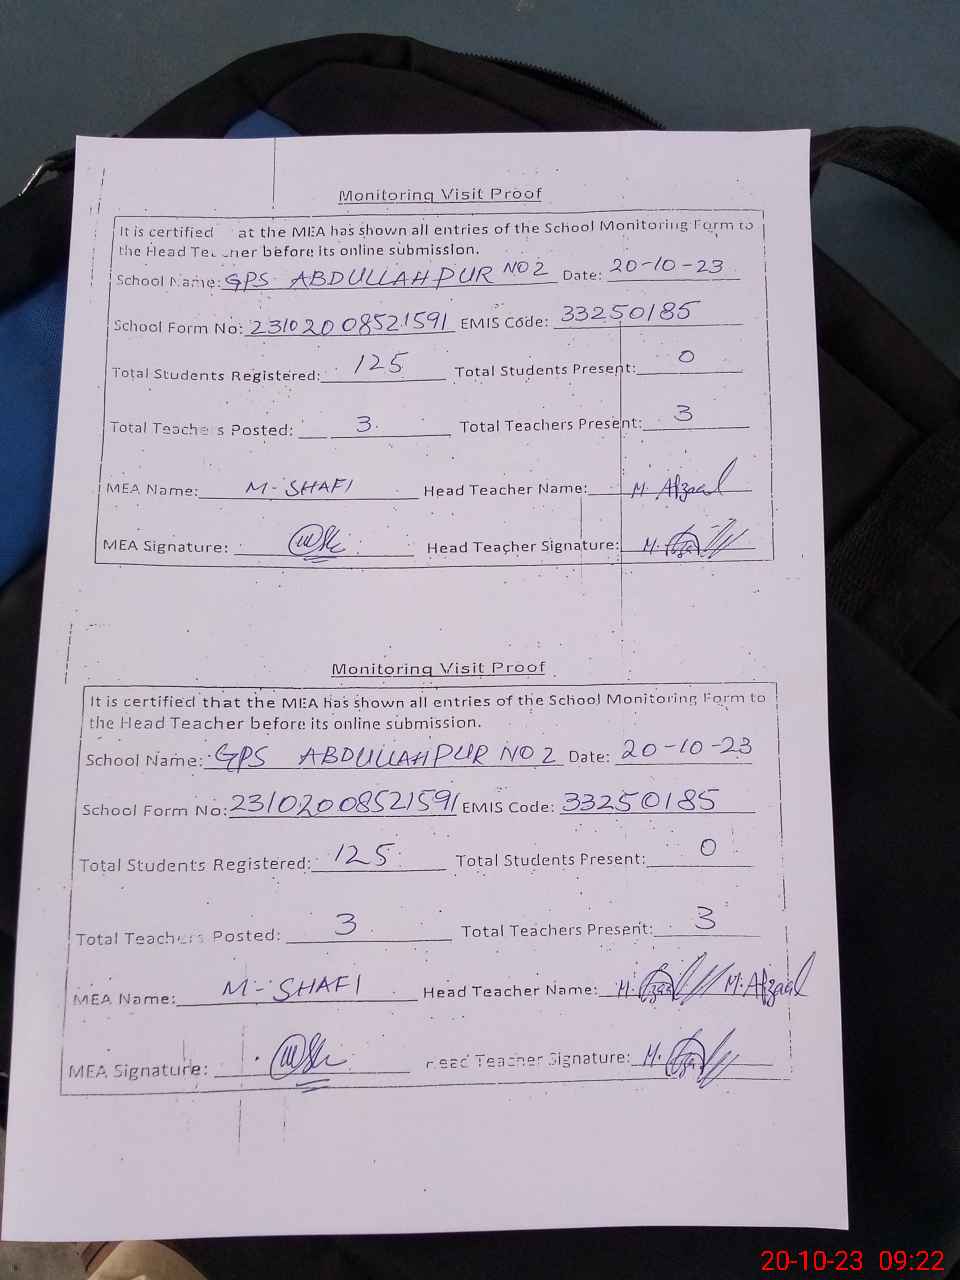 Monitoring Visit Proof
It is certified at the MEA has shown all entries of the School Monitoring Form to
the Head Teacher before its online submission.
School Name: GPS ABDULLAHPUR NO 2 Date: 20-10-23
School Form No: 23102008521591 EMIS Code: 33250185
Total Students Registered: 125 Total Students Present: 0
Total Teachers Posted: 3 Total Teachers Present: 3
MEA Name: M-SHAFI Head Teacher Name: M. Afzaal
MEA Signature: Head Teacher Signature: M.
Monitoring Visit Proof
It is certified that the MEA has shown all entries of the School Monitoring Form to
the Head Teacher before its online submission.
School Name: GPS ABDULLAHPUR NO 2 Date: 20-10-23
School Form No: 23102008521591 EMIS Code: 33250185
Total Students Registered: 125 Total Students Present: 0
Total Teachers Posted: 3 Total Teachers Present: 3
MEA Name: M-SHAFI Head Teacher Name: M. M. Afzaal
MEA Signature: Head Teacher Signature: M.
20-10-23 09:22